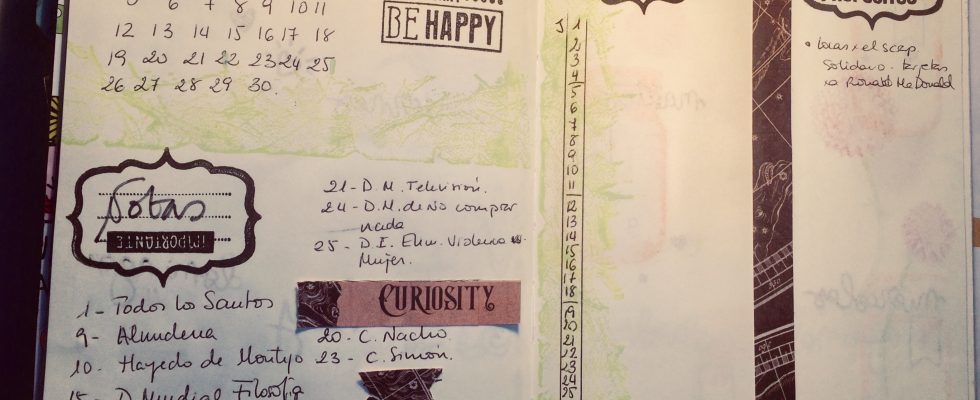 5 6 7 8 9 10 11
12 13 14 15 16 17 18
19 20 21 22 23 24 25
26 27 28 29 30.
BE HAPPY
Notas
IMPORTANTE
21 - D.M. Televisión.
24 - D.M. de No comprar
nada
25 - D.I. Elim. Violencia
Mujer.
CURIOSITY
1 - Todos los Santos
9 - Almudena
10 - Hayedo de Montejo
15 - D. Mundial Filosofía
20 - C. Nacho
23 - C. Simón.
J 1
2
3
4
5
6
7
8
9
10
11
12
13
14
15
16
17
18
19
20
21
22
23
24
25
el scrap
Solidario. tarjetas
Ronald McDonald